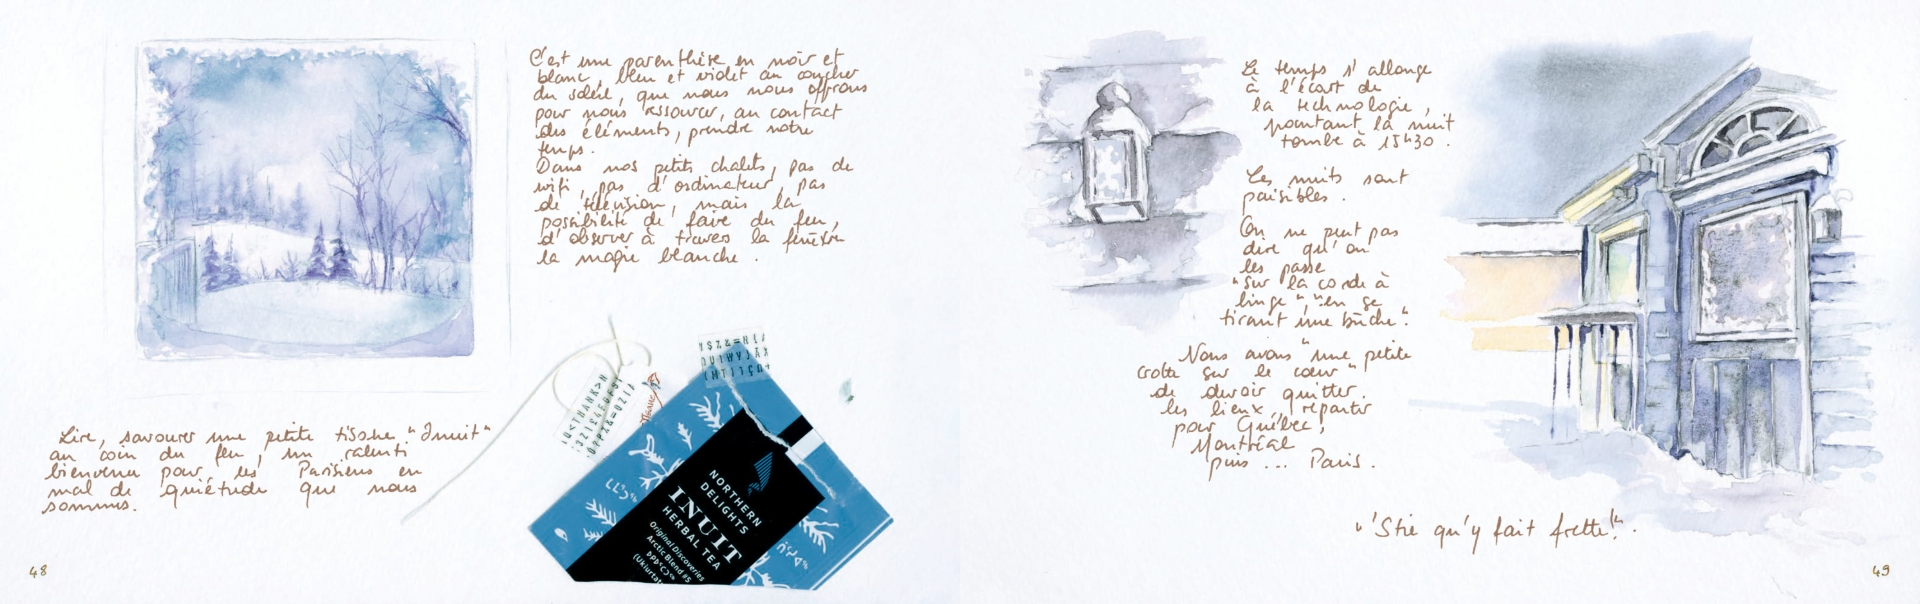 C'est une parenthèse en noir et
blanc, bleu et violet au coucher
du soleil, que nous nous offrons
pour nous ressourcer, au contact
des éléments, prendre notre
temps.
Dans nos petits chalets, pas de
wifi, pas d'ordinateur, pas
de télévision, mais la
possibilité de faire du feu,
d'observer à travers la fenêtre
la magie blanche.
Lire, savourer une petite tisane "Inuit"
au coin du feu, un ralenti
bienvenu pour les Parisiens en
mal de quiétude que nous
sommes.
NORTHERN
DELIGHTS
INUIT
HERBAL TEA
Original Discoveries
Arctic Blend #5
48
Le temps s'allonge
à l'écart de
la technologie,
pourtant la nuit
tombe à 15h30.
Les nuits sont
paisibles.
On ne peut pas
dire qu'on
les passe
"sur la corde à
linge", "en se
tirant une bûche".
Nous avons "une petite
crotte sur le cœur"
de devoir quitter
les lieux, repartir
pour Québec,
Montréal
puis ... Paris.
"'Stie qu'y fait frette!".
49